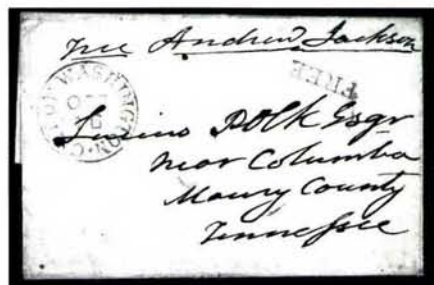 Free Andrew Jackson
FREE
CITY OF WASHINGTON
OCT
Lucius Polk Esqr
near Columbia
Maury County
Tennessee